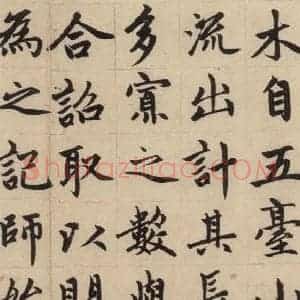 木自五臺山
流出計其長
多寡之數與
合詔取以
為之記師
Shufaziliao.COM